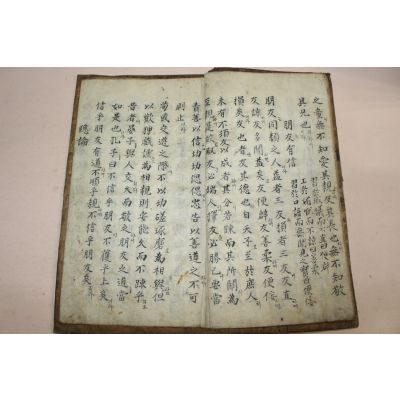 之童無不知愛其親及其長也無不知敬
其兄也
朋友有信
朋友同類之人益者三友損者三友友直
友諒友多聞益矣友便辟友善柔友便佞
損矣友也者友其德也自天子至於庶人
未有不須友以成者其分若踈而其所關爲
至親是故取友必端人擇友必勝己要當
責善以信切切偲偲忠告以善道之不可
則止
苟或交遊之際不以切磋琢磨爲相與但
以歡狎戱謔爲相親則安能久而不踈乎
昔者晏子與人交久而敬之朋友之道當
如是也孔子曰不信乎朋友不獲乎上矣
信乎朋友有道不順乎親不信乎朋友矣
總論